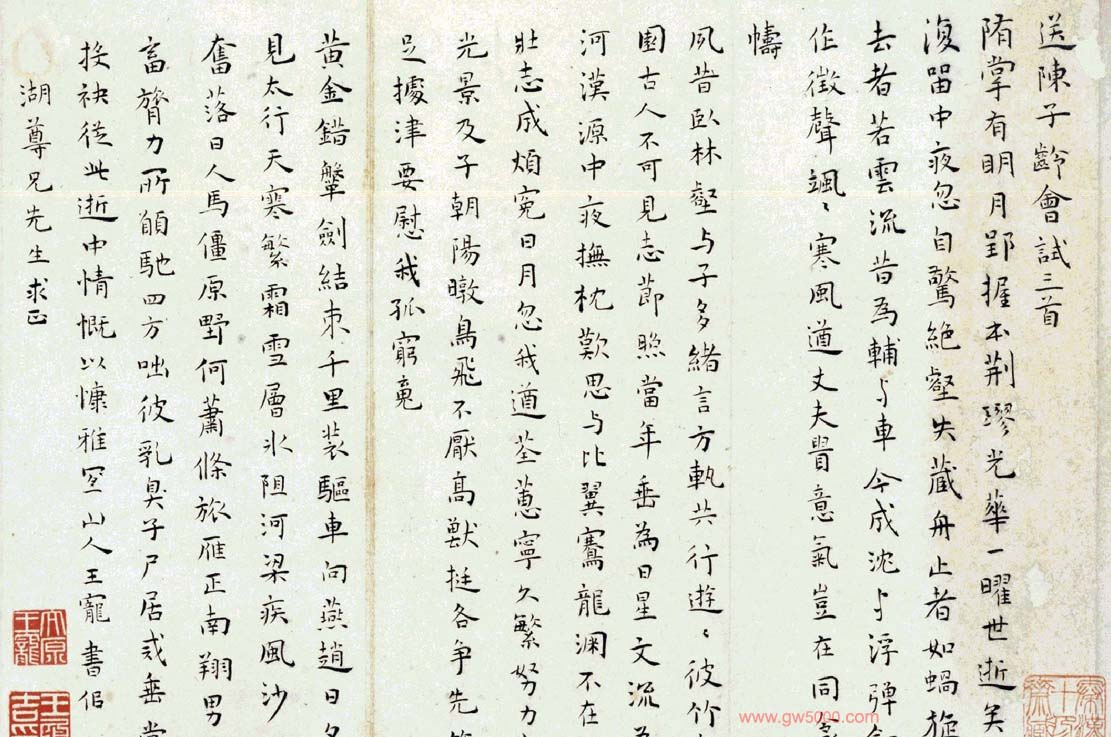 送陳子齡會試三首
隋掌有明月郢握本荆璆光華一曜世逝矣
復留中夜忽自驚絕壑失藏舟止者如蝸旋
去者若雲流昔為輔与車今成沈与浮彈劍
作徵聲颯〻寒風遒丈夫貴意氣豈在同衾
幬
夙昔臥林壑与子多緒言方軌共行遊〻彼竹
園古人不可見志莭照當年垂為日星文流為
河漢源中夜撫枕歎思与比翼騫龍淵不在
壯志成煩寃日月忽我遒荃蕙寧久繁努力
光景及子朝陽暾鳥飛不厭高獸挺各争先
足據津要慰我孤窮䰟
黃金錯鞶劍結束千里裝驅車向燕趙日夕
見太行天寒繁霜雪層氷阻河梁疾風沙
奮落日人馬僵原野何蕭條旅雁正南翔男
畜膂力所願馳四方咄彼乳臭子尸居或垂堂
投袂從此逝中情慨以慷雅宜山人王寵書侣
湖尊兄先生求正
王寵
www.gw5000.com